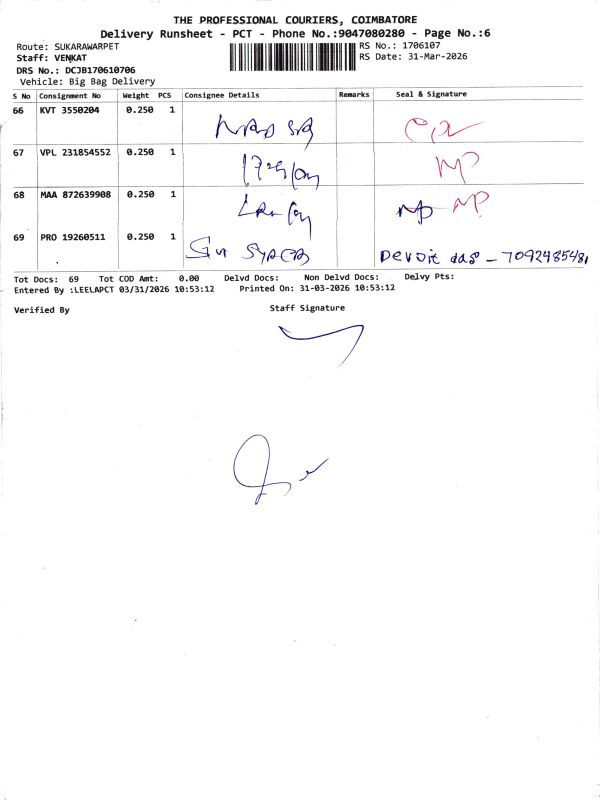 THE PROFESSIONAL COURIERS, COIMBATORE
Delivery Runsheet - PCT - Phone No.:9047080280 - Page No.:6
Route: SUKARAWARPET
RS No.: 1706107
Staff: VENKAT
RS Date: 31-Mar-2026
DRS No.: DCJB170610706
Vehicle: Big Bag Delivery
S No Consignment No Weight PCS Consignee Details Remarks Seal & Signature
66 KVT 3550204 0.250 1
67 VPL 231854552 0.250 1
68 MAA 872639908 0.250 1
69 PRO 19260511 0.250 1
das - 7092485481
Tot Docs: 69 Tot COD Amt: 0.00 Delvd Docs: Non Delvd Docs: Delvy Pts:
Entered By :LEELAPCT 03/31/2026 10:53:12 Printed On: 31-03-2026 10:53:12
Verified By Staff Signature